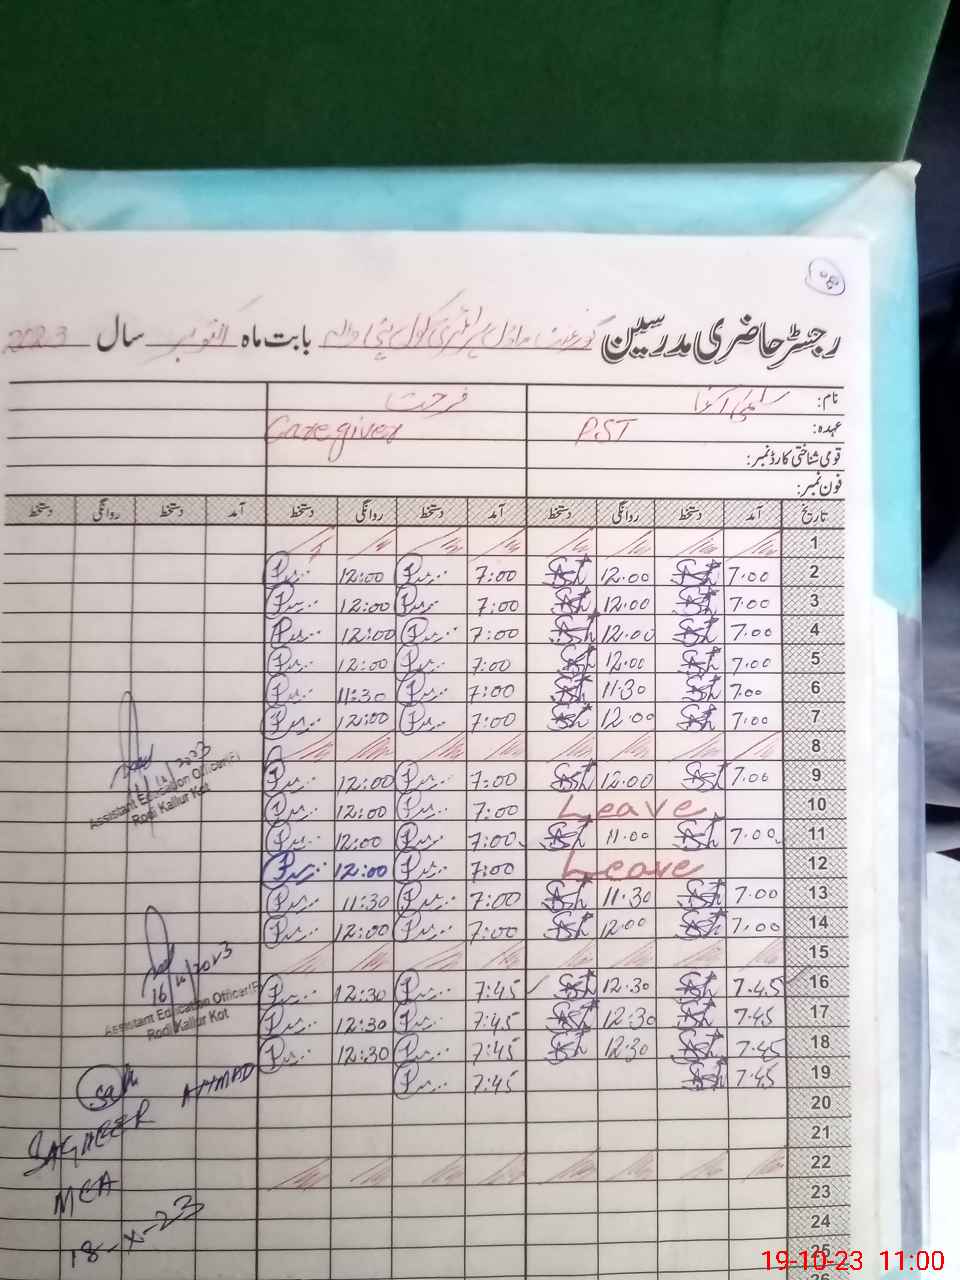 رجسٹر حاضری مدرسین بابت ماہ اکتوبر سال 2023
نام: فرحت
عہدہ: PST Caregiver
قومی شناختی کارڈ نمبر:
فون نمبر:
تاریخ آمد دستخط روانگی دستخط آمد دستخط روانگی دستخط آمد دستخط روانگی دستخط
1
2 7.00 12.00 7:00 12:00
3 7.00 12.00 7:00 12:00
4 7.00 12.00 7:00 12:00
5 7.00 12.00 7:00 12:00
6 7.00 11.30 7:00 11:30
7 7.00 12.00 7:00 12:00
8
9 7.00 12.00 7:00 12:00
10 Leave 7:00 12:00
11 7.00 11.00 7:00 12:00
12 Leave 7:00 12:00
13 7.00 11.30 7:00 11:30
14 7.00 12.00 7:00 12:00
15
16 7.45 12.30 7:45 12:30
17 7.45 12.30 7:45 12:30
18 7.45 12.30 7:45 12:30
19 7.45 7:45
20
21
22
23
24
25
Assistant Education Officer(F)
Rodi Kallur Kot
16/10/2023
Assistant Education Officer(F)
Rodi Kallur Kot
SAGHEER AHMAD
MEA
18-X-23
19-10-23 11:00